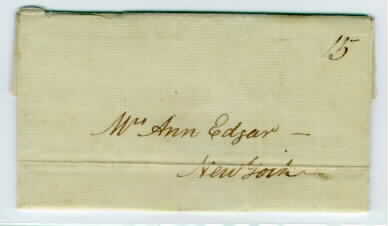 15
Mrs Ann Edgar —
New York